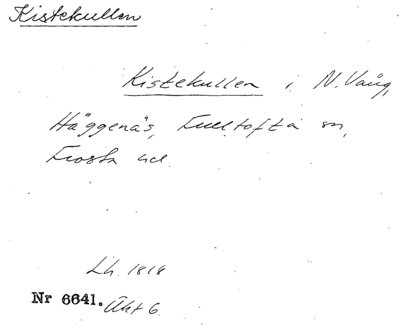 Kistekullen
Kistekullen i N. Vång,
Häggenäs, Fulltofta sn,
Frosta hd.
Lh. 1818
Nr 6641. Akt 6.